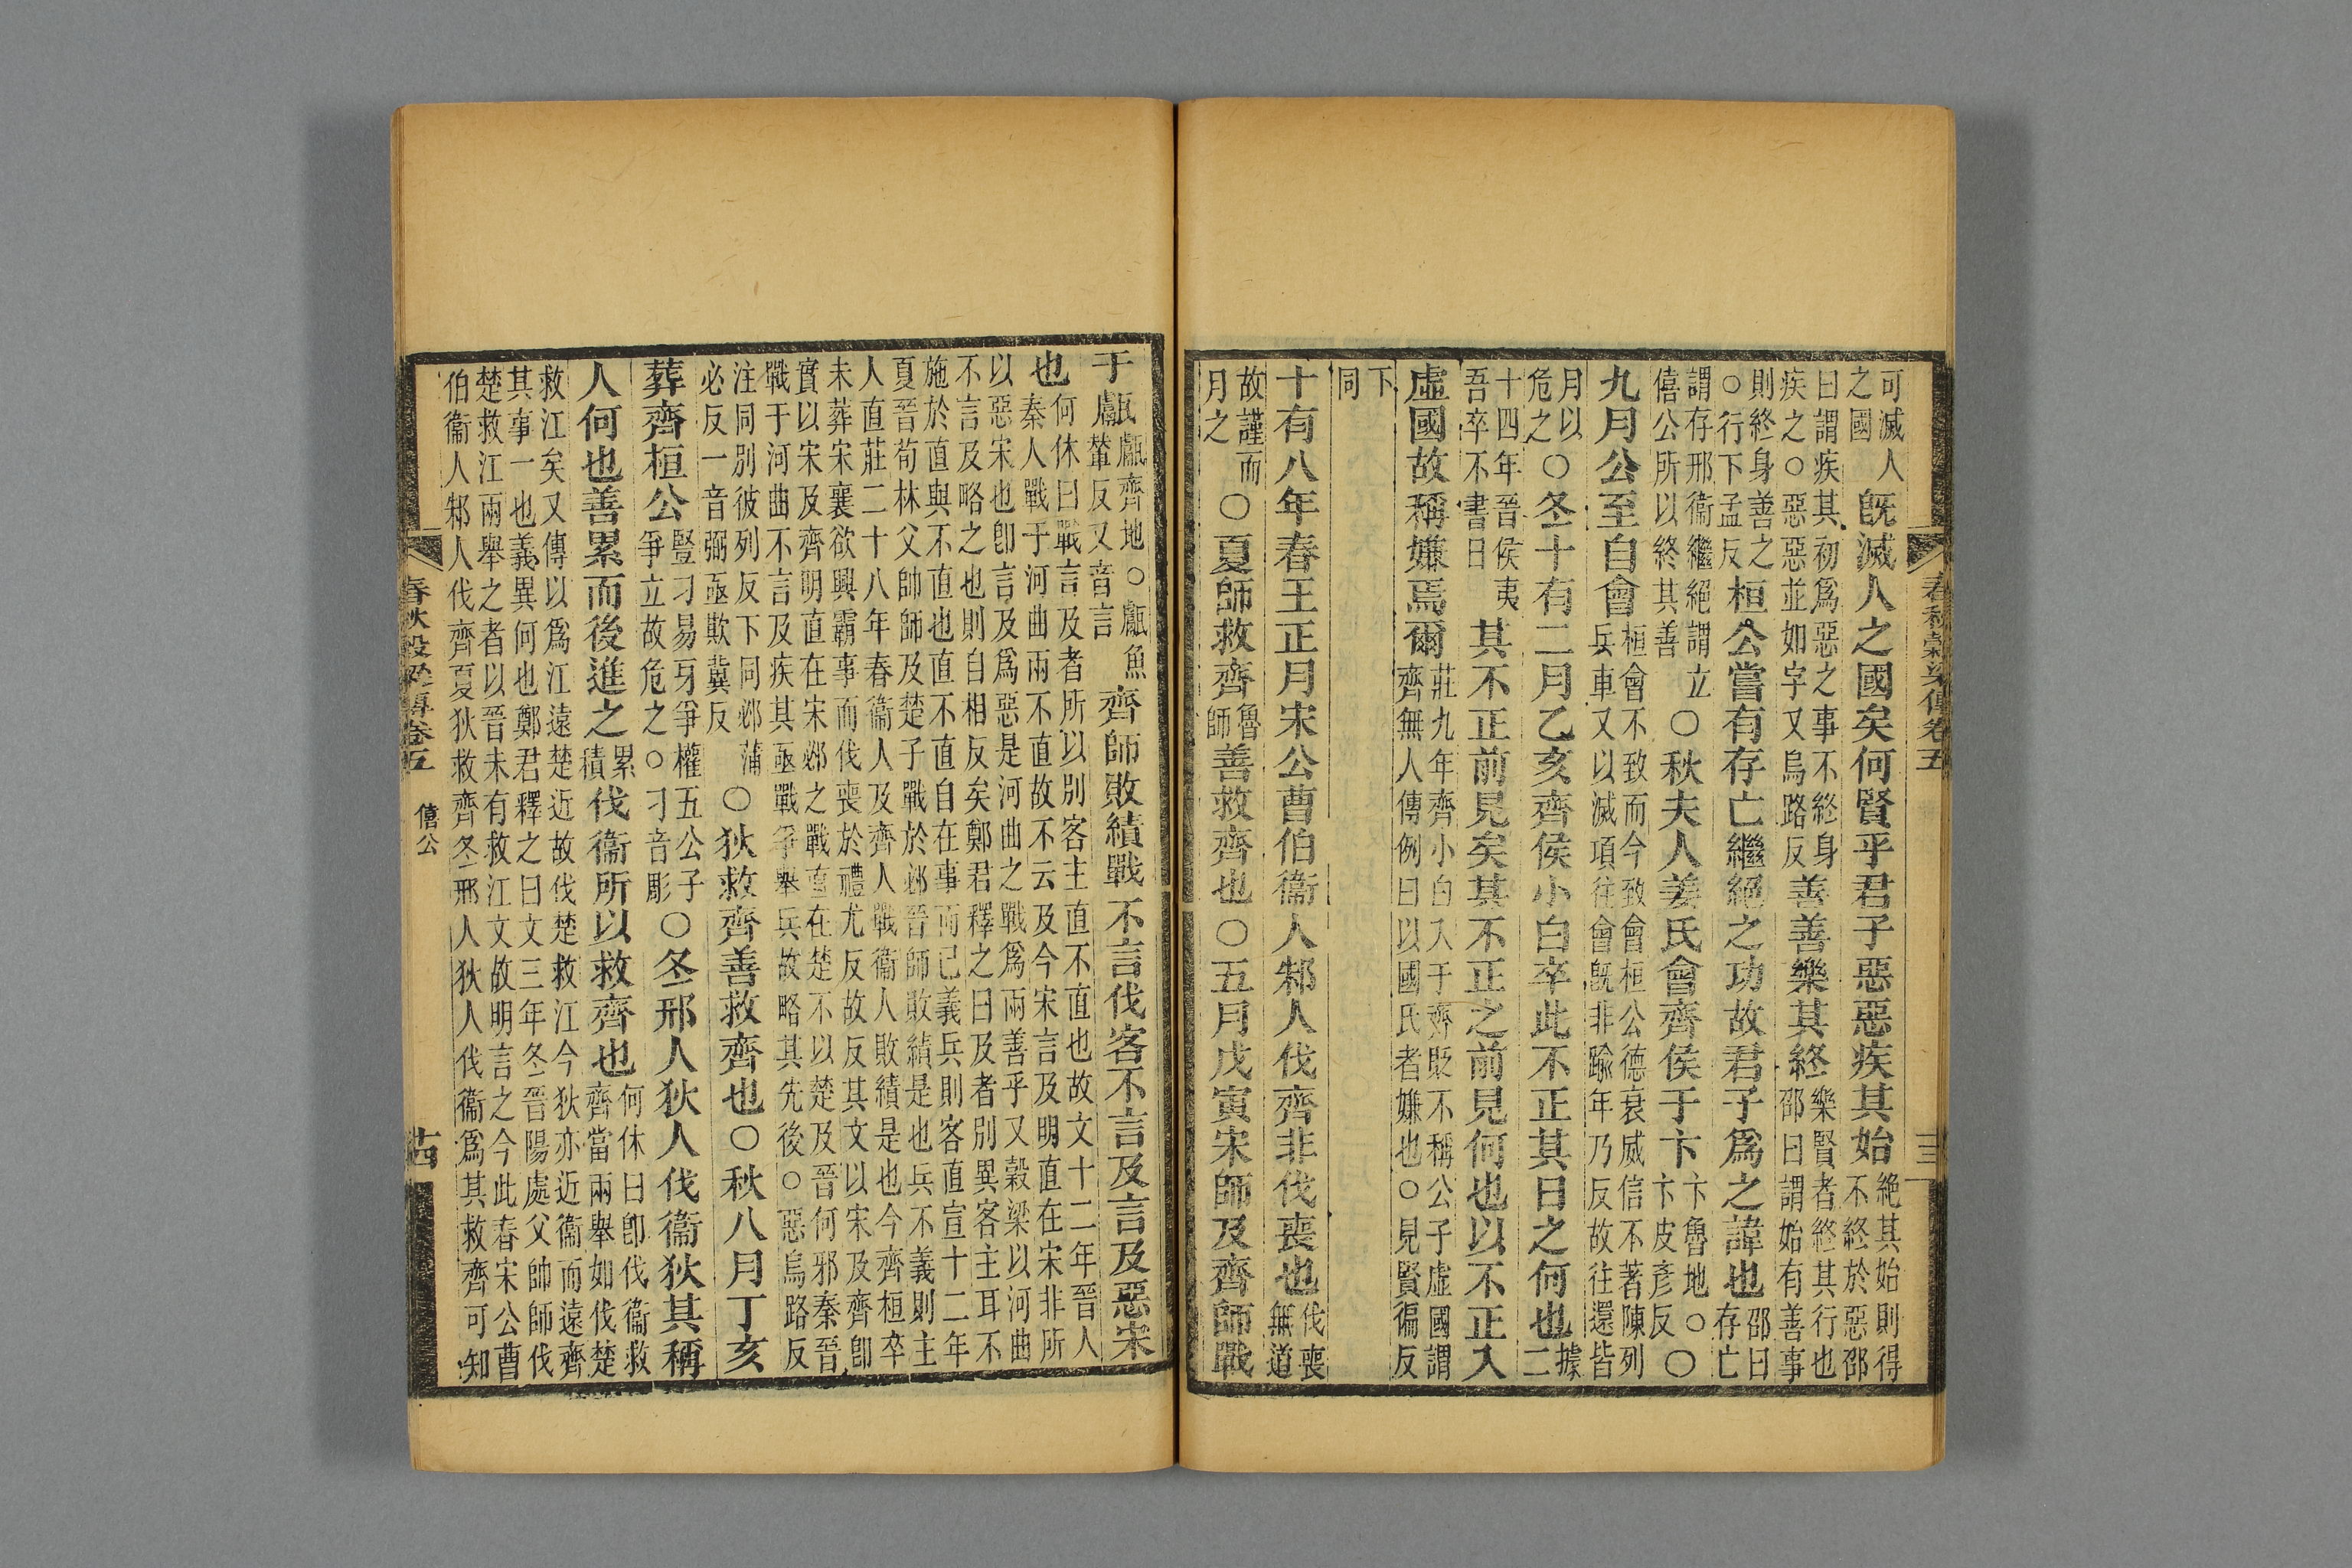 春秋穀梁傳卷五 三
可滅人之國旣滅人之國矣何賢乎君子惡惡疾其始絕其始則得不終於惡邵
曰謂疾其初爲惡之事不終身疾之○惡惡並如字又烏路反善善樂其終樂賢者終其行也邵曰謂始有善事
則終身善之○行下孟反桓公嘗有存亡繼絕之功故君子爲之諱也邵曰存亡
謂存邢衞繼絕謂立僖公所以終其善○秋夫人姜氏會齊侯于卞卞魯地○卞皮彥反○
九月公至自會桓會不致而今致會桓公德衰威信不著陳列兵車又以滅項往會旣非踰年乃反故往還皆
月以危之○冬十有二月乙亥齊侯小白卒此不正其日之何也據二
十四年晉侯夷吾卒不書日其不正前見矣其不正之前見何也以不正入
虛國故稱嫌焉爾莊九年齊小白入于齊貶不稱公子虛國謂齊無人傳例曰以國氏者嫌也○見賢徧反
下同
十有八年春王正月宋公曹伯衞人邾人伐齊非伐喪也伐喪無道
故謹而月之○夏師救齊魯師善救齊也○五月戊寅宋師及齊師戰
于甗甗齊地○甗魚輦反又音言齊師敗績戰不言伐客不言及言及惡宋
也何休曰戰言及者所以別客主直不直也故文十二年晉人秦人戰于河曲兩不直故不云及今宋言及明直在宋非所
以惡宋也卽言及爲惡是河曲之戰爲兩善乎又穀梁以河曲不言及略之也則自相反矣鄭君釋之曰及者別異客主耳不
施於直與不直也直不直自在事而已義兵則客直宣十二年夏晉荀林父帥師及楚子戰於邲晉師敗績是也兵不義則主
人直莊二十八年春衞人及齊人戰衞人敗績是也今齊桓卒未葬宋襄欲興霸事而伐喪於禮尤反故反其文以宋及齊卽
實以宋及齊明直在宋邲之戰直在楚不以楚及晉何邪秦晉戰于河曲不言及疾其亟戰爭舉兵故略其先後○惡烏路反
注同別彼列反下同邲蒲必反一音弼亟欺冀反○狄救齊善救齊也○秋八月丁亥
葬齊桓公豎刁易牙爭權五公子爭立故危之○刁音彫○冬邢人狄人伐衞狄其稱
人何也善累而後進之累積伐衞所以救齊也何休曰卽伐衞救齊當兩舉如伐楚
救江矣又傳以爲江遠楚近故伐楚救江今狄亦近衞而遠齊其事一也義異何也鄭君釋之曰文三年冬晉陽處父帥師伐
楚救江兩舉之者以晉未有救江文故明言之今此春宋公曹伯衞人邾人伐齊夏狄救齊冬邢人狄人伐衞爲其救齊可知
春秋穀梁傳卷五 僖公 十四